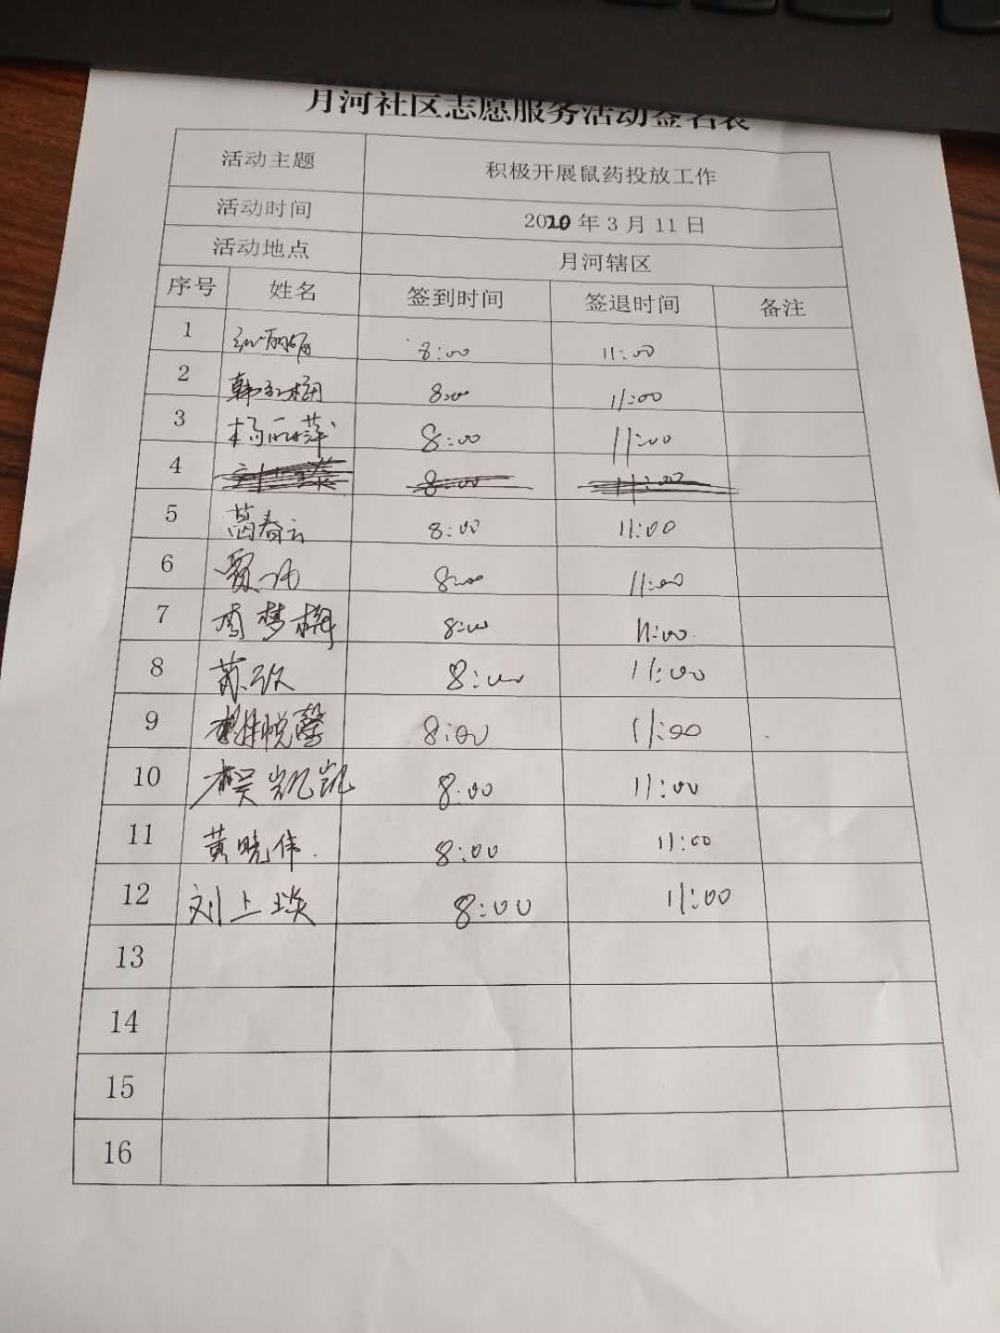 月河社区志愿服务活动签名表
活动主题 积极开展鼠药投放工作
活动时间 2020年3月11日
活动地点 月河辖区
序号 姓名 签到时间 签退时间 备注
1 8:00 11:00
2 韩红梅 8:00 11:00
3 杨丽萍 8:00 11:00
4 8:00 11:00
5 葛春云 8:00 11:00
6 8:00 11:00
7 李梦梅 8:00 11:00
8 8:00 11:00
9 8:00 11:00
10 8:00 11:00
11 黄晓伟. 8:00 11:00
12 刘上瑛 8:00 11:00
13
14
15
16